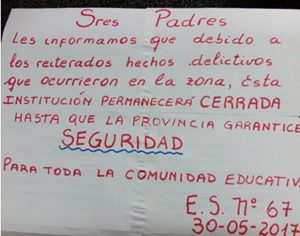 Sres Padres
Les informamos que debido a
los reiterados hechos delictivos
que ocurrieron en la zona, ésta
INSTITUCIÓN PERMANECERÁ CERRADA
HASTA QUE LA PROVINCIA GARANTICE
SEGURIDAD
PARA TODA LA COMUNIDAD EDUCATIV
E.S. Nº 67
30-05-2017